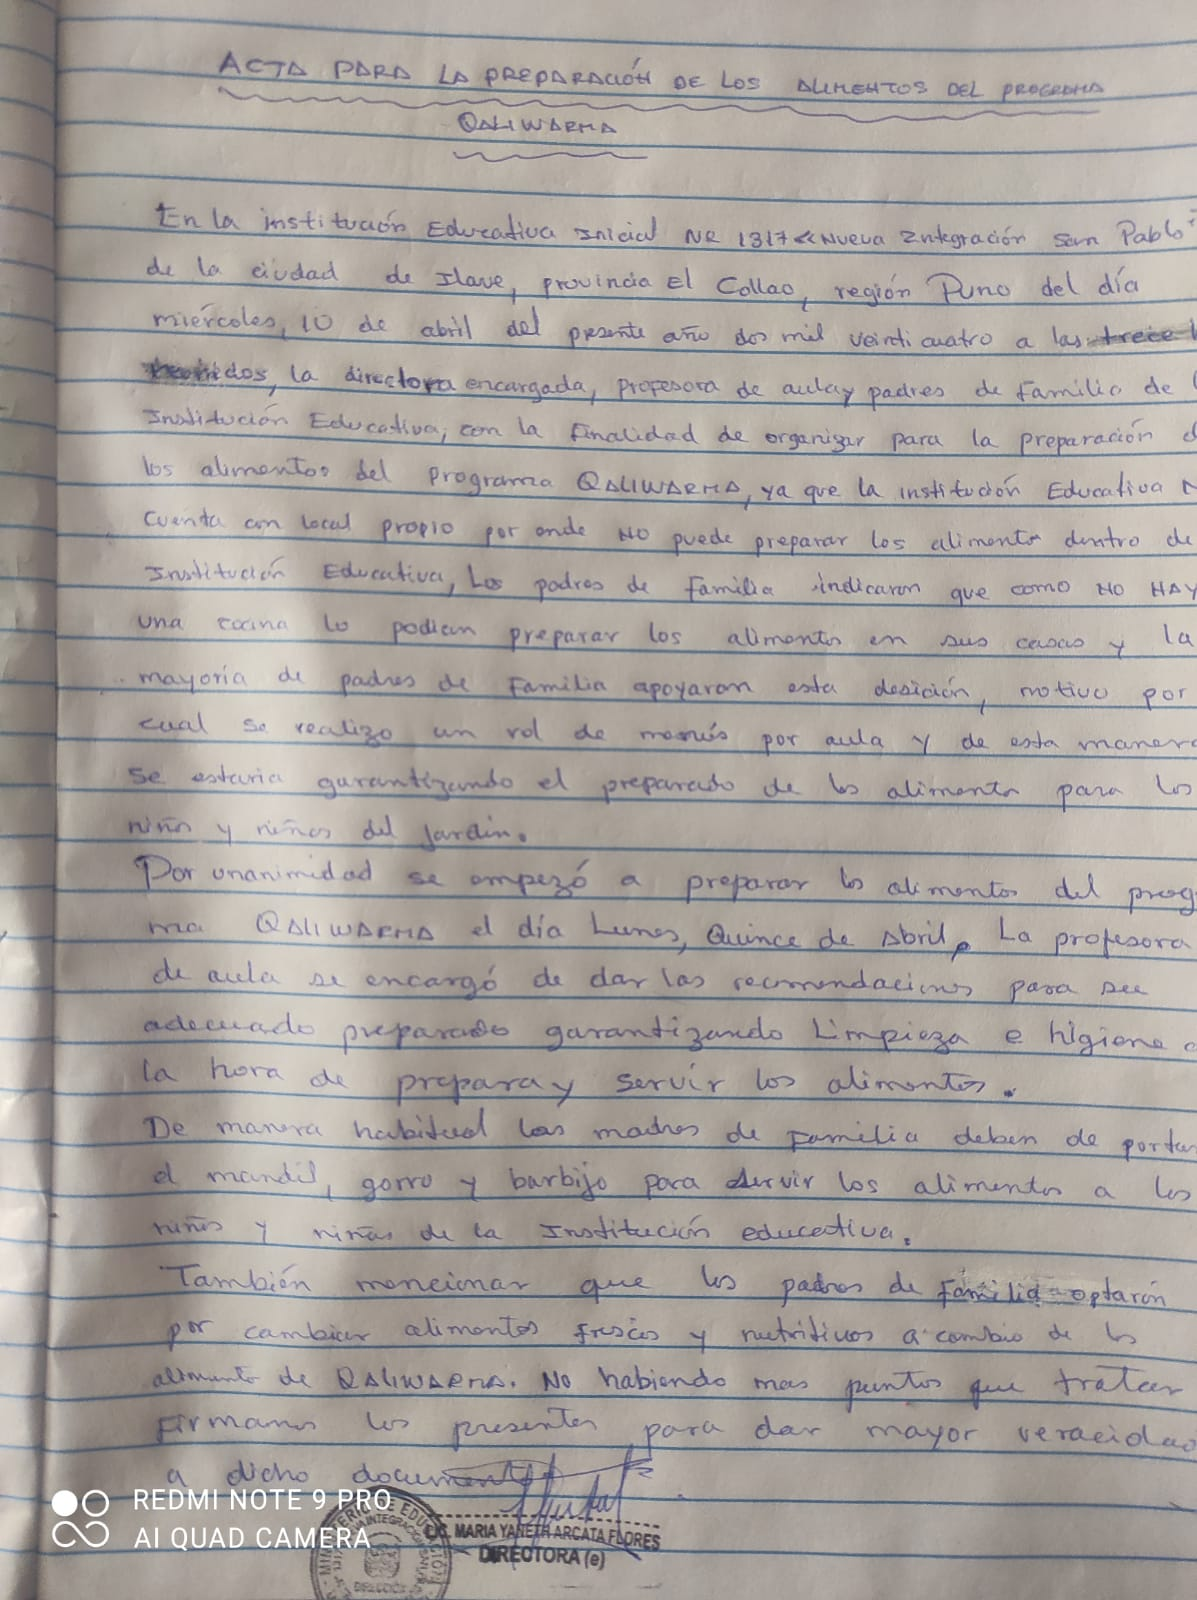 ACTA PARA LA PREPARACIÓN DE LOS ALIMENTOS DEL PROGRAMA
QALIWARMA
En la institución Educativa Inicial NR 1317 «Nueva Integración San Pablo"
de la ciudad de Ilave, provincia El Collao, región Puno del día
miércoles, 10 de abril del presente año dos mil veinticuatro a las trece
dos, la directora encargada, profesora de aula y padres de familia de
Institución Educativa, con la finalidad de organizar para la preparación
los alimentos del programa QALIWARMA, ya que la institución Educativa
cuenta con local propio por onde NO puede preparar los alimentos dentro de
Institución Educativa, Los padres de familia indicaron que como NO HAY
una cocina lo podian preparar los alimentos en sus casas y la
mayoría de padres de familia apoyaron esta desición, motivo por
cual se realizo un rol de menús por aula y de esta manera
se estaria garantizando el preparado de los alimentos para los
niños y niñas del jardín.
Por unanimidad se empezó a preparar los alimentos del prog
ma QALIWARMA el día Lunes, Quince de Abril, La profesora
de aula se encargó de dar las recomendaciones para su
adecuado preparado garantizando Limpieza e higiene
la hora de prepara y servir los alimentos.
De manera habitual las madres de familia deben de portar
el mandil, gorro y barbijo para servir los alimentos a los
niños y niñas de la Institución educativa.
También mencionar que los padres de familia optarón
por cambiar alimentos frescos y nutritivos a cambio de los
alimento de QALIWARMA. No habiendo mas puntos que tratar
firmamos los presentes para dar mayor veracidad
a dicho documento
LIC. MARIA YANETH ARCATA FLORES
DIRECTORA (e)
MINISTERIO DE EDUCACIÓN
DIRECCIÓN
REDMI NOTE 9 PRO
AI QUAD CAMERA